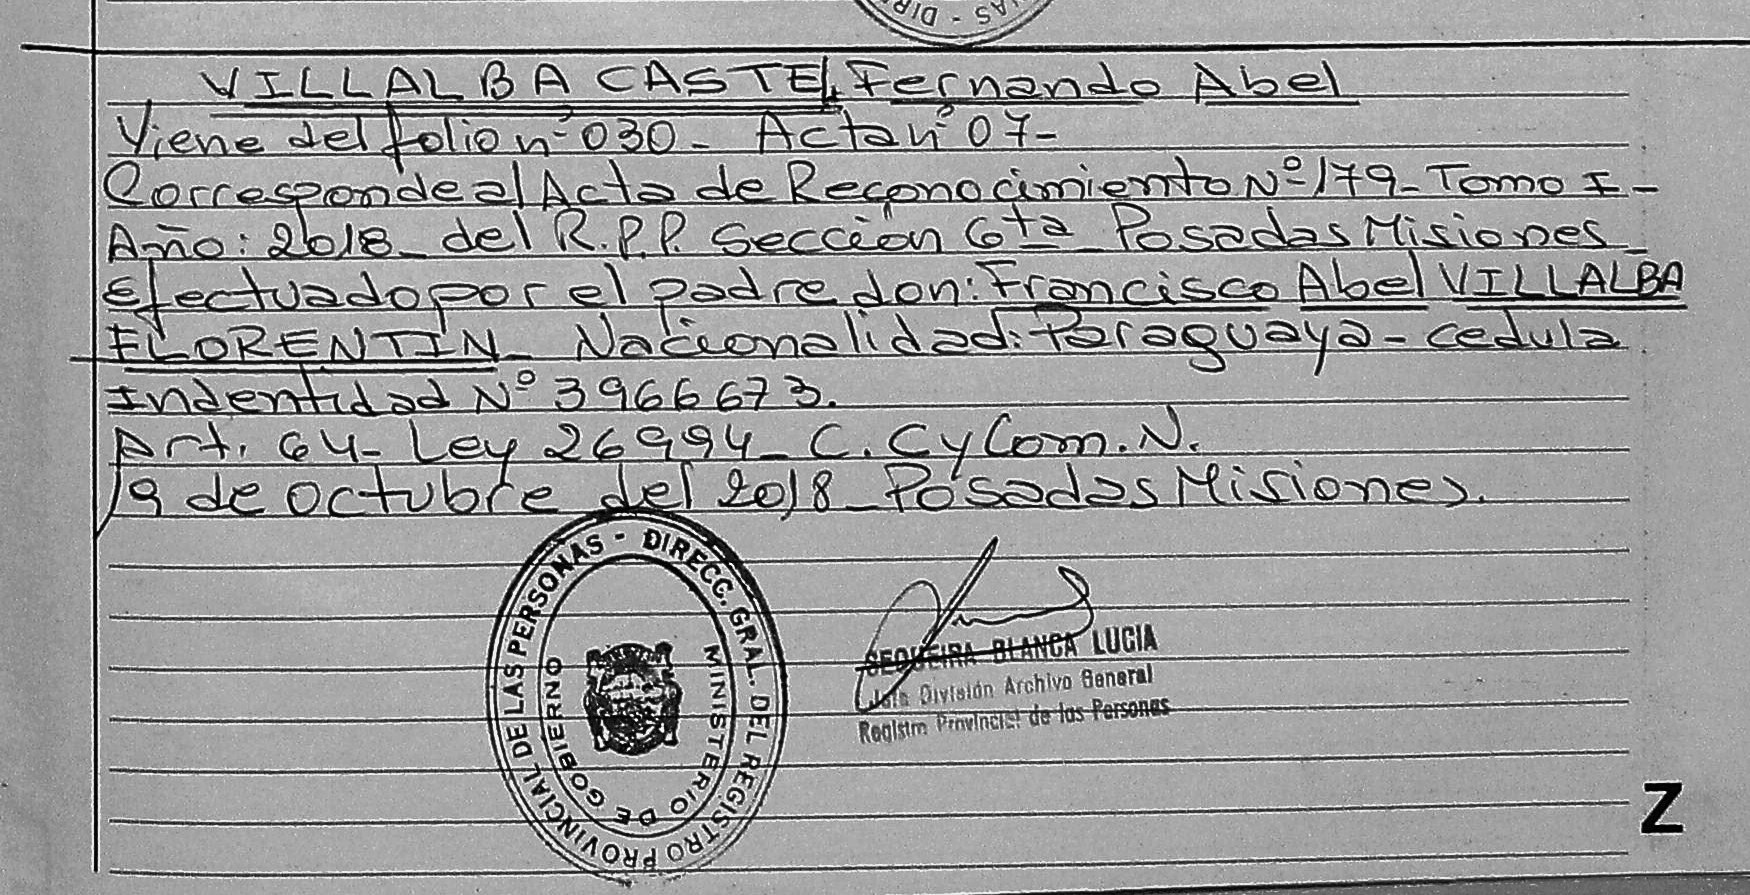 VILLALBA CASTEL, Fernando Abel
Viene del folio nº 030 - Acta nº 07 -
Corresponde al Acta de Reconocimiento Nº 179 - Tomo I -
Año: 2018 - del R.P.P. Sección 6ta - Posadas Misiones -
Efectuado por el padre don: Francisco Abel VILLALBA
FLORENTIN - Nacionalidad: Paraguaya - cedula
Indentidad Nº 3966673.
Art. 64 - Ley 26994 - C. Cy Com. N.
19 de octubre del 2018 - Posadas Misiones.
DIRECC. GRAL. DEL REGISTRO PROVINCIAL DE LAS PERSONAS -
MINISTERIO DE GOBIERNO
SEQUEIRA BLANCA LUCIA
Jefe División Archivo General
Registro Provincial de las Personas
Z